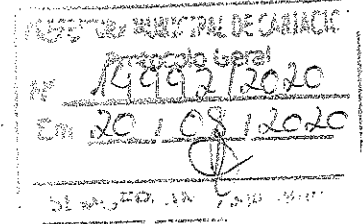 PREFEITURA MUNICIPAL DE CARIACICA
Protocolo Geral
Nº 14992/2020
Em 20 / 08 / 2020